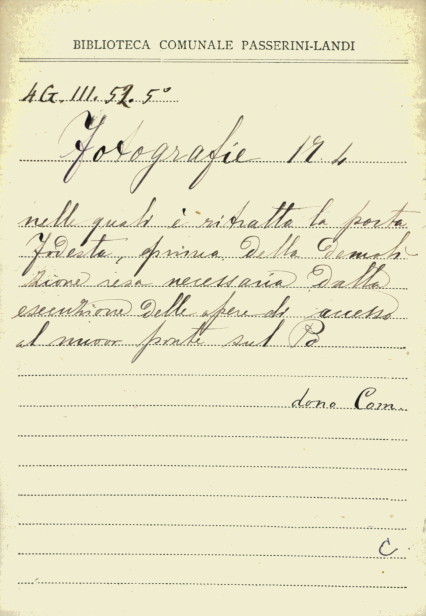 BIBLIOTECA COMUNALE PASSERINI-LANDI
4G. III. 52. 5°
Fotografie N 4
nelle quali è ritratta la porta
Fodesta, prima della demoli
zione resa necessaria dalla
esecuzione delle opere di accesso
al nuovo ponte sul Po
dono Com.
C